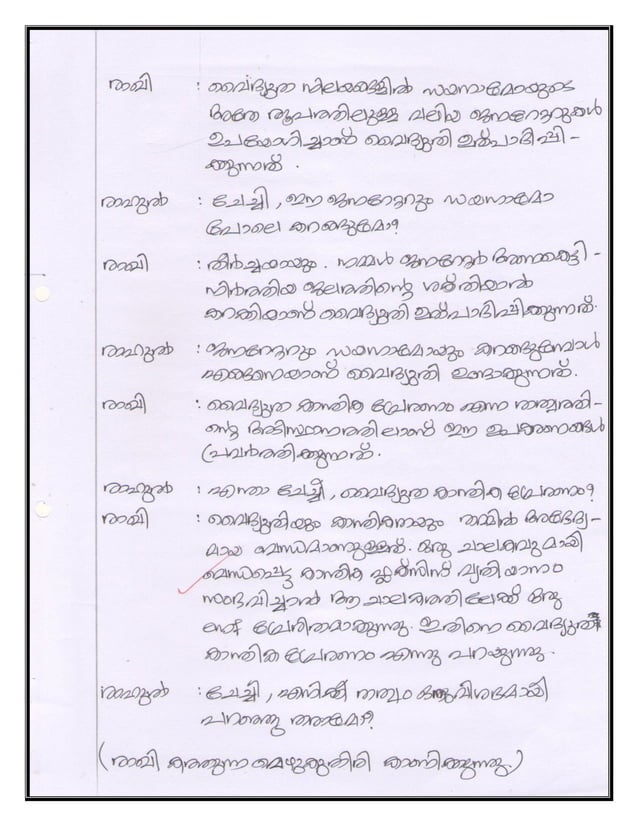 രാഖി : വൈദ്യുത നിലയങ്ങളിൽ ഡയനാമോയുടെ
അതേ രൂപത്തിലുള്ള വലിയ ജനറേറ്ററുകൾ
ഉപയോഗിച്ചാണ് വൈദ്യുതി ഉത്പാദിപ്പി-
ക്കുന്നത്.
രാഹുൽ : ചേച്ചി, ഈ ജനറേറ്ററും ഡയനാമോ
പോലെ കറങ്ങുമോ?
രാഖി : തീർച്ചയായും. നമ്മൾ ജനറേറ്റർ അണക്കെട്ടി-
നിർത്തിയ ജലത്തിന്റെ ശക്തിയാൽ
കറക്കിയാണ് വൈദ്യുതി ഉത്പാദിപ്പിക്കുന്നത്.
രാഹുൽ : ജനറേറ്ററും ഡയനാമോയും കറങ്ങുമ്പോൾ
എങ്ങനെയാണ് വൈദ്യുതി ഉണ്ടാകുന്നത്.
രാഖി : വൈദ്യുത കാന്തിക പ്രേരണം എന്ന തത്വത്തി-
ന്റെ അടിസ്ഥാനത്തിലാണ് ഈ ഉപകരണങ്ങൾ
പ്രവർത്തിക്കുന്നത്.
രാഹുൽ : എന്താ ചേച്ചീ, വൈദ്യുത കാന്തിക പ്രേരണം?
രാഖി : വൈദ്യുതിയും കാന്തികതയും തമ്മിൽ അഭേദ്യ-
മായ ബന്ധമാണുള്ളത്. ഒരു ചാലകവുമായി
ബന്ധപ്പെട്ട കാന്തിക ഫ്ളക്സിന് വ്യതിയാനം
സംഭവിച്ചാൽ ആ ചാലകത്തിലേക്ക് ഒരു
emf പ്രേരിതമാകുന്നു. ഇതിനെ വൈദ്യുത
കാന്തിക പ്രേരണം എന്നു പറയുന്നു.
രാഹുൽ : ചേച്ചി, എനിക്കീ തത്വം ഒന്നു വിശദമായി
പറഞ്ഞു തരാമോ?
(രാഖി കത്തുന്ന മെഴുകുതിരി കാണിക്കുന്നു.)